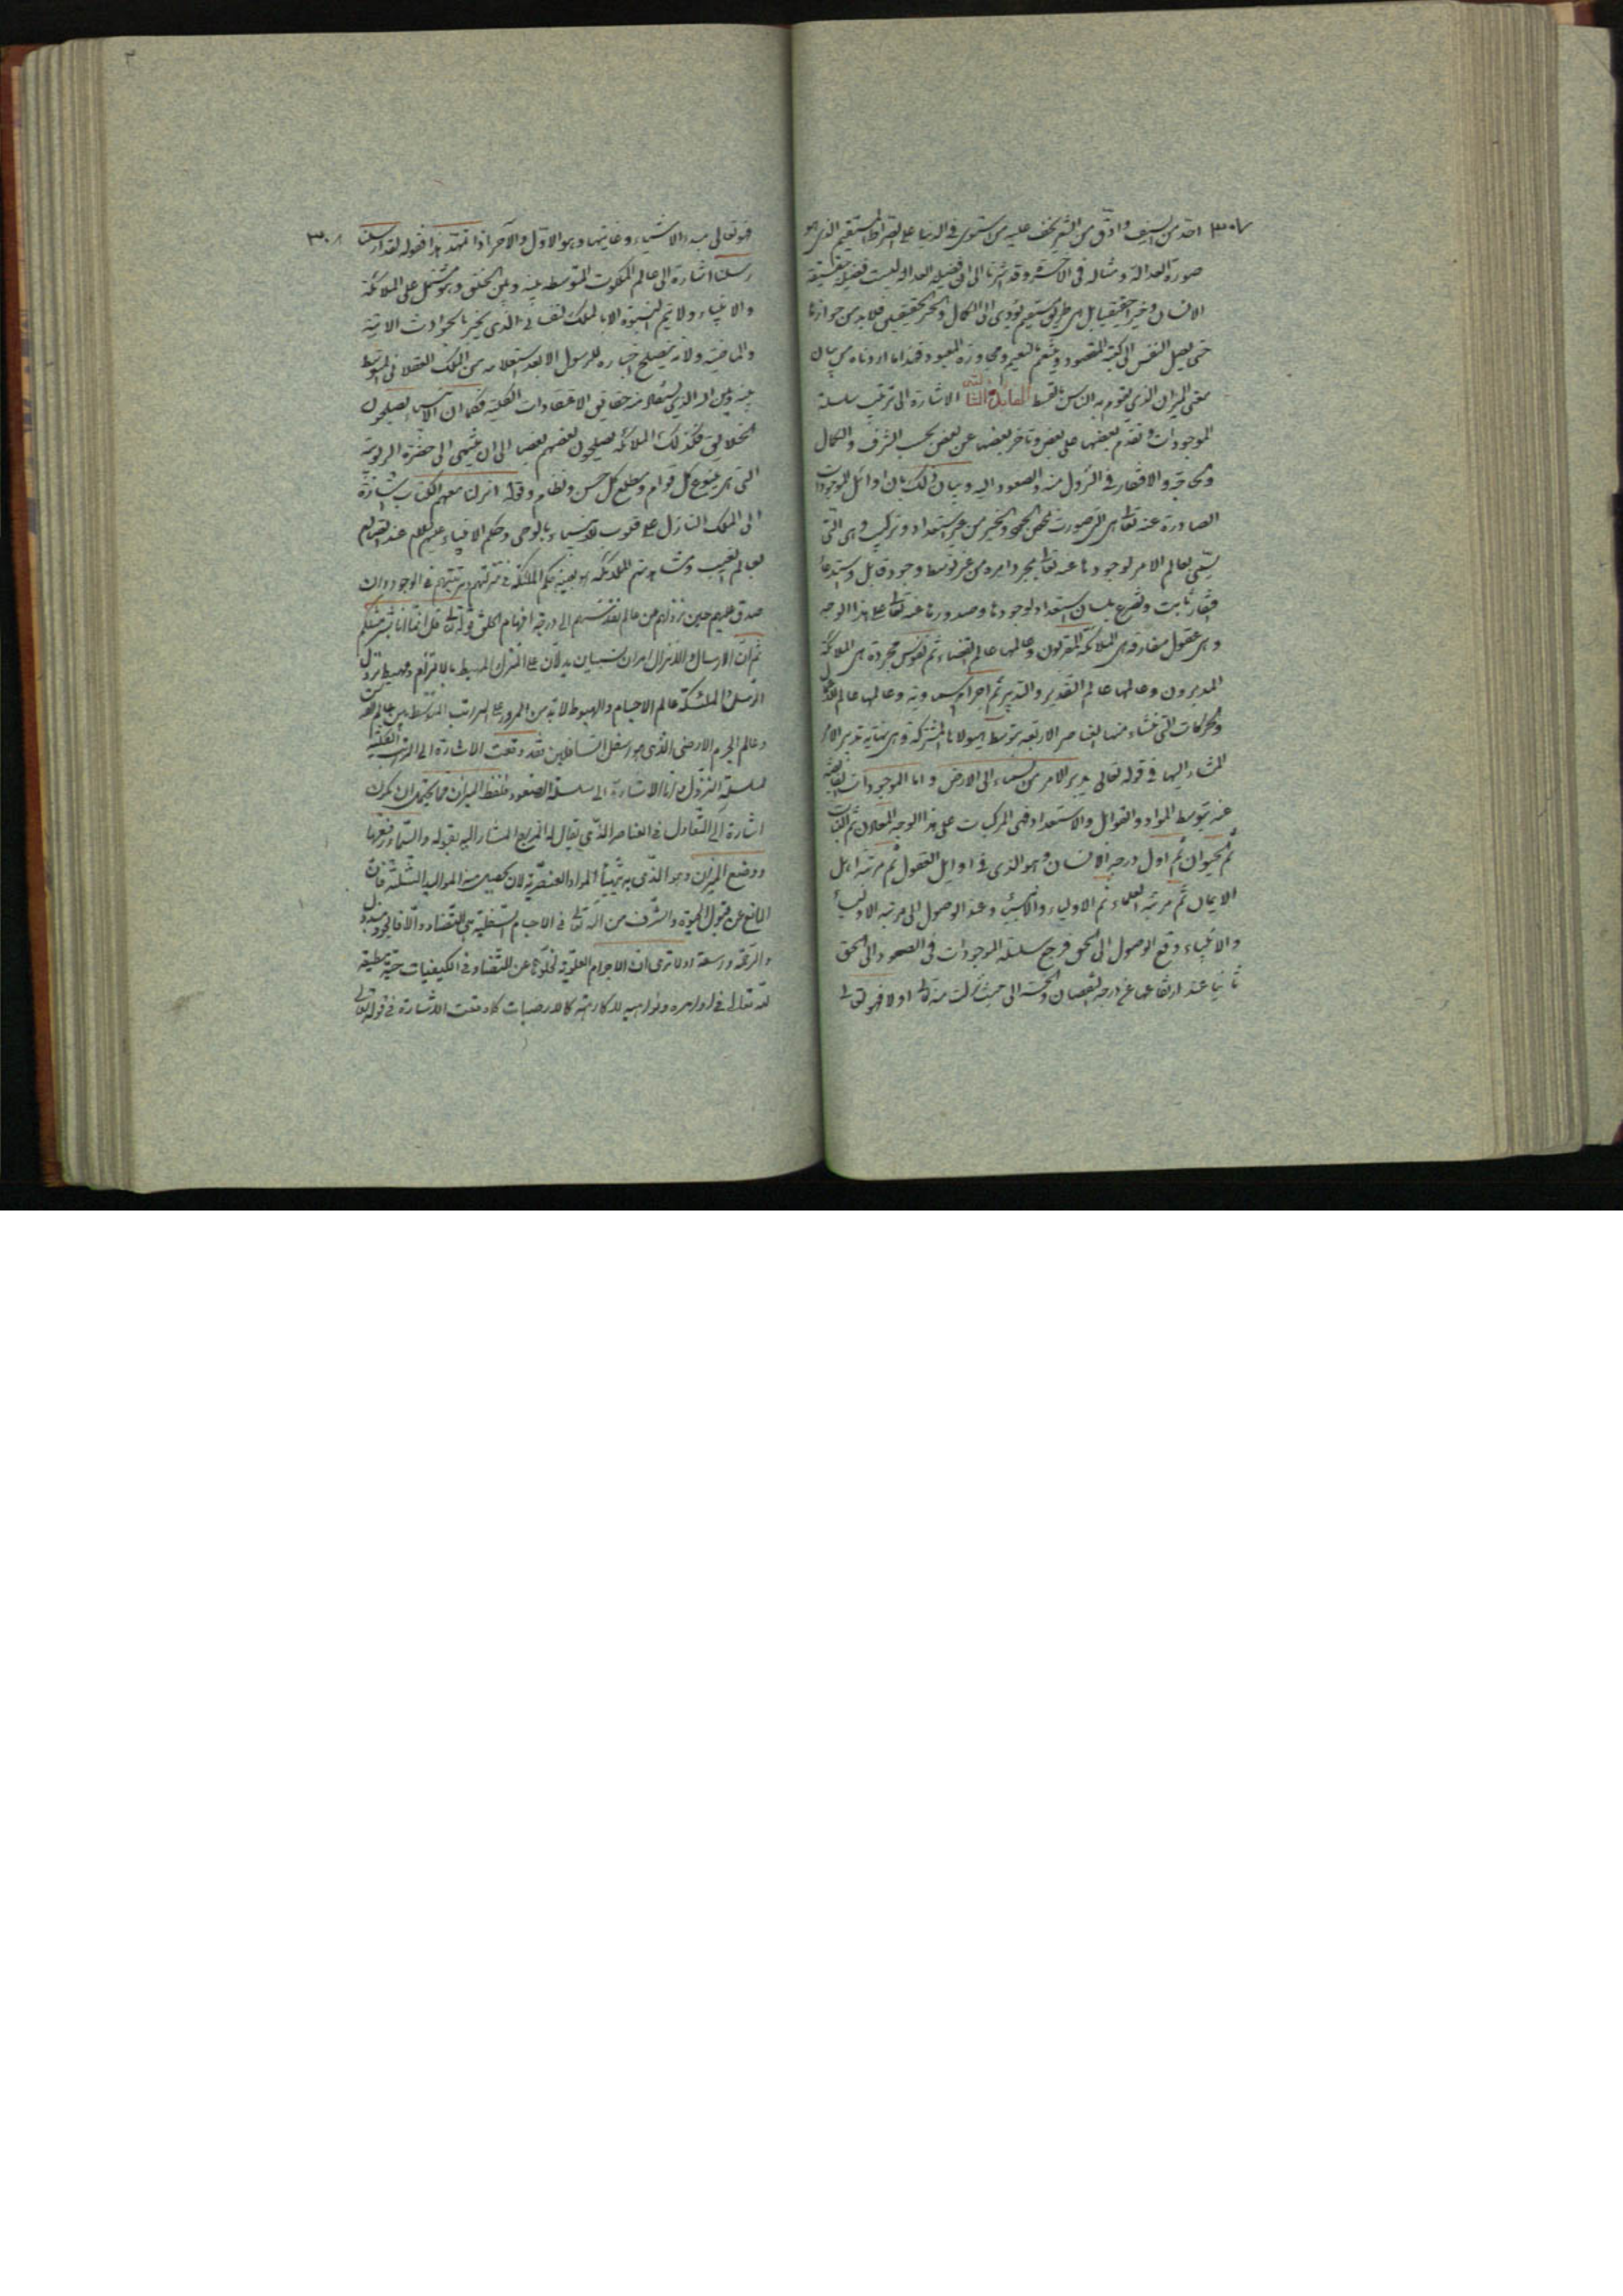 ٣٠٧
احد من السيف وادق من الشعر يخف عليه من استوى في الدنيا على الصراط المستقيم الذي هو
صورة العدالة ومثاله في الآخرة وقد اشرنا الى ان فضيلة العدالة ليست فضيلة حقيقية
الانسان وخيرا حقيقيا بل هي طريق مستقيم يؤدي الى الكمال والخير الحقيقيين فلا بد من جوازها
حتى يصل النفس الى كعبة المقصود ويتنعم بالنعيم ومجاورة المعبود فهذا ما اردناه من بيان
معنى الميزان الذي يقوم به الناس بالقسط الفايدة الثانية الاشارة الى ترتيب سلسلة
الموجودات وتقدم بعضها على بعض وتأخر بعضها عن بعض بحسب الشرف والكمال
والحاجة والافتقار في النزول منه والصعود اليه وبيان ذلك بان اوائل الموجودات
الصادرة عنه تعالى هي التي صدرت بمحض الجود والخير من غير استعداد وتركيب وهي التي
يسمى بعالم الامر لوجودها عنه تعالى بمجرد امره من غير توسط وجود قابل واستدعاء
افتقار ثابت وتضرع بلسان استعداد لوجودها وصدورها عنه تعالى على هذا الوجه
وهي عقول مفارقة هي الملائكة المقربون وعالمها عالم القضاء ثم نفوس مجردة هي الملائكة
المدبرون وعالمها عالم التقدير والتدبير ثم اجرام سماوية وعالمها عالم
والحركات التي تنشاء منها العناصر الاربعة بتوسط هيولاها المشتركة وهي نهاية تدبير الامر
المشار اليها في قوله تعالى يدبر الامر من السماء الى الارض واما الموجودات الفايضة
عنه بتوسط المواد والقوابل والاستعداد فهي المركبات على هذا الوجه المعادن ثم النبات
ثم الحيوان ثم اول درجة الانسان وهو الذي في اوايل العقول ثم مرتبة اهل
الايمان ثم مرتبة العلماء ثم الاولياء والانبياء وعند الوصول الى مرتبة الاولياء
والانبياء وقع الوصول الى الحق فرجع سلسلة الموجودات في الصعود الى الحق
ثانيا عند ارتقاعها عن درجة النقصان والخسة الى حيث نزلت منه تعالى اولا فهو تعالى
٣٠٨
فهو تعالى مبدء الاشياء وغايتها وهو الاول والآخر اذا تمهد هذا فقوله لقد ارسلنا
رسلنا اشارة الى عالم الملكوت المتوسط بينه وبين الخلق وهو مشتمل على الملائكة
والانبياء ولا يتم النبوة الا بالملك الذي يخبر بالحوادث الآتية
والماضية ولا يصلح اخباره للرسول الا بعد استعلامه من الملك العقلاني المتوسط
بينه وبين الله الذي يستفاد منه حقايق الاعتقادات الكلية فكما ان الانس يصلحون
الخلايق فكذلك الملائكة يصلحون بعضهم بعضا الى ان ينتهي الى حضرة الربوبية
التي هي ينبوع كل قوام ومطلع كل حسن ونظام وقوله انزلنا معهم الكتاب اشارة
الى الملك النازل على قلوب الانبياء بالوحي وحكم الانبياء عليهم السلام عند اتصالهم
بعالم الغيب ومشاهدتهم الملائكة هو بعينه حكم الملائكة في منزلتهم ومرتبتهم في الوجود وان
صدق عليهم حين نزولهم من عالم تقدسهم الى درجة افهام الخلق قوله تعالى قل انما انا بشر مثلكم
ثم ان الارسال والانزال امران نسبيان يدلان على المنزل المهبط بالالتزام ومهبط نزول
الرسل والملائكة عالم الاجسام والهبوط لا بد من المرور على المراتب المتوسطة بين عالم
وعالم الجرم الارضي الذي هو اسفل السافلين فقد وقعت الاشارة الى المراتب الكلية
لسلسلة النزول واما الاشارة الى سلسلة الصعود فلفظ الميزان مما يحتمل ان يكون
اشارة الى التعادل في العناصر الذي يقال له المزاج المشار اليه بقوله والسماء رفعها
ووضع الميزان وهو الذي به يتهيأ المواد العنصرية لان يحصل منه المواليد الثلثة فان
المانع عن قبول الحيوة والشرف من الله تعالى في الاجسام السفلية هي التضاد والا فالجود مبذول
والرحمة واسعة اولا ترى ان الاجرام العلوية لخلوها عن التضاد في الكيفيات حية مطيعة
لله تعالى في اوامره ونواهيه لا كارهة كالارضيات كما وقعت الاشارة في قوله تعالى